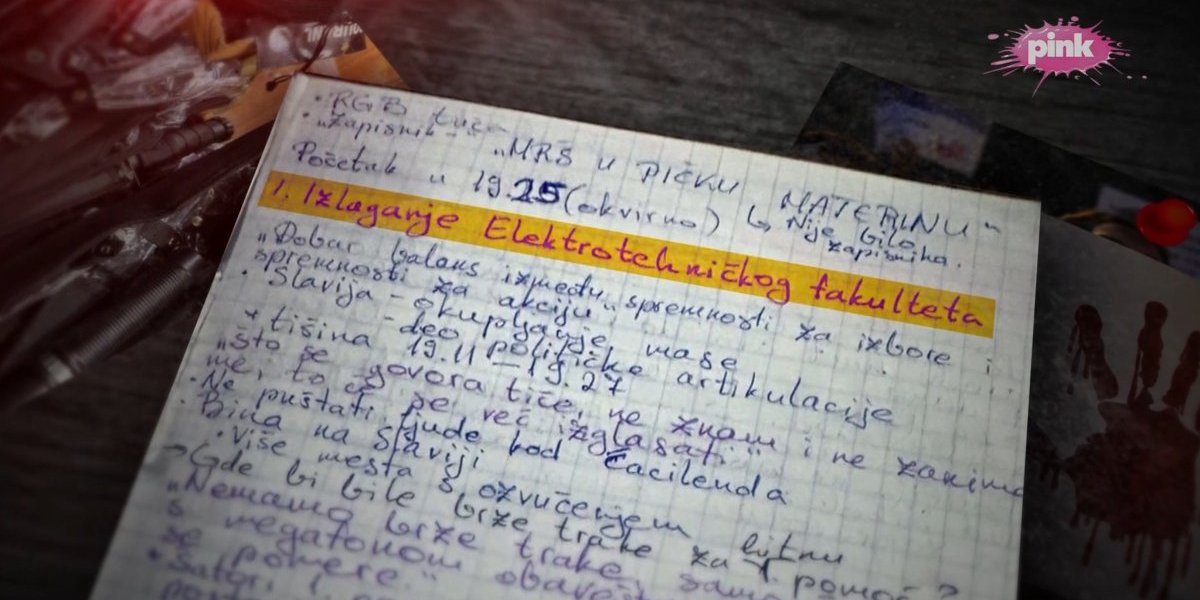 pink
• RGB tuča
• „Zapisnik" – „MRŠ U PIČKU MATERINU"
Početak u 19.25 (okvirno) ↳ Nije bilo zapisnika.
1. Izlaganje Elektrotehničkog fakulteta
„Dobar balans između „spremnosti za izbore i
spremnosti za akciju"
• Slavija – okupljanje mase
– deo političke artikulacije
+ tišina 19.11 – 19.27
„što se govora tiče, ne znam i ne zanima
me, to će se već izglasati"
• Ne puštati ljude kod Ćacilenda
• Bina na Slaviji
• više mesta s ozvučenjem
→ Gde bi bile brze trake za hitnu pomoć?
„Nemamo brze trake, samo
s megafonom
se pomere."
• Šatori i